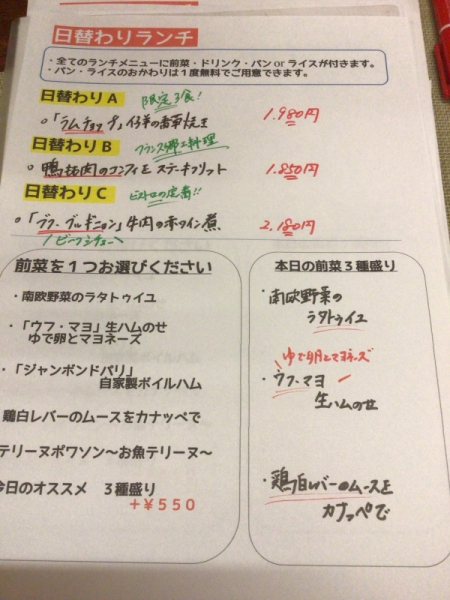 日替わりランチ
・全てのランチメニューに前菜・ドリンク・パン or ライスが付きます。
・パン・ライスのおかわりは１度無料でご用意できます。
日替わり A 限定3食!
○「ラムチョップ」仔羊の香草焼き 1.980円
日替わり B フランス郷土料理
○ 鴨技肉のコンフィと ステーキフリット 1.850円
日替わり C ビストロの定番!!
○「ブフ・ブルギニョン」牛肉の赤ワイン煮 2.180円
ビーフシチュー
前菜を１つお選びください
・南欧野菜のラタトゥイユ
・「ウフ・マヨ」生ハムのせ
ゆで卵とマヨネーズ
・「ジャンボンドパリ」
自家製ボイルハム
鶏白レバーのムースをカナッペで
テリーヌポワソン～お魚テリーヌ～
今日のオススメ ３種盛り
＋￥５５０
本日の前菜３種盛り
・南欧野菜の
ラタトゥイユ
ゆで卵とマヨネーズ
・ウフ・マヨ
生ハムのせ
・鶏白レバーのムースを
カナッペで